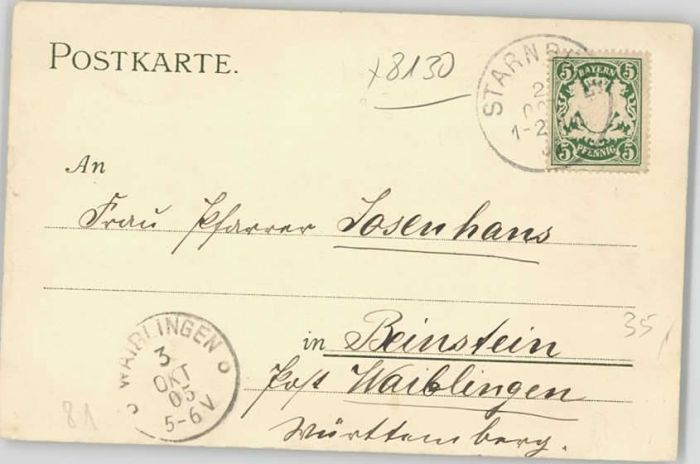 POSTKARTE.
x8130
STARNB
2
1-2
5 BAYERN 5
5 PFENNIG 5
An
Frau Pfarrer Josenhans
in Beinstein
35
Post Waiblingen
Württemberg.
WAIBLINGEN
3
OKT
05
5-6 V
81